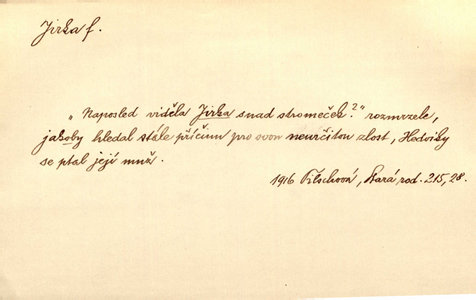 Jirka f.
„Naposled viděla Jirka snad stromeček?" rozmrzele,
jakoby hledal stále příčinu pro svou neurčitou zlost, Hedviky
se ptal její muž.
1916 Tilschová, Stará rod. 215, 28.